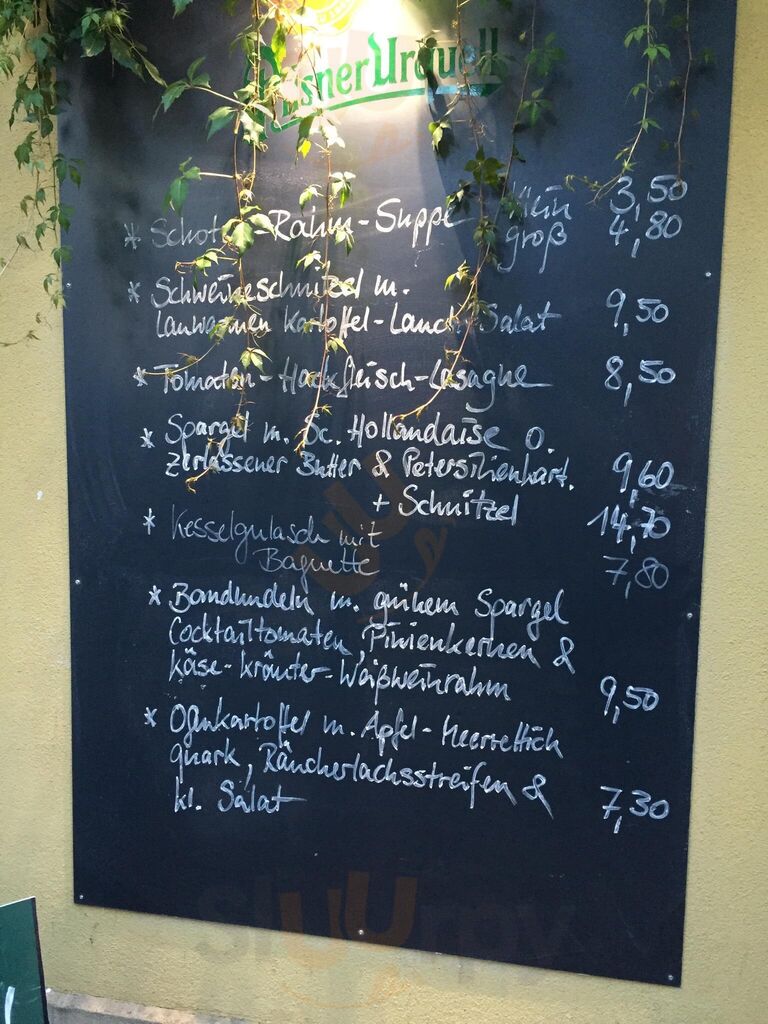 Pilsner Urquell
* Schoten-Rahm-Suppe klein 3,50
groß 4,80
* Schweineschnitzel m.
lauwarmen Kartoffel-Lauch-Salat 9,50
* Tomaten-Hackfleisch-Lasagne 8,50
* Spargel m. Sc. Hollandaise o.
zerlassener Butter & Petersilienkart. 9,60
+ Schnitzel 14,70
* Kesselgulasch mit
Baguette 7,80
* Bandnudeln m. grünem Spargel
Cocktailtomaten, Pinienkernen &
Käse-Kräuter-Weißweinrahm 9,50
* Ofenkartoffel m. Apfel-Meerrettich
quark, Räucherlachsstreifen &
kl. Salat 7,30
sluurpy